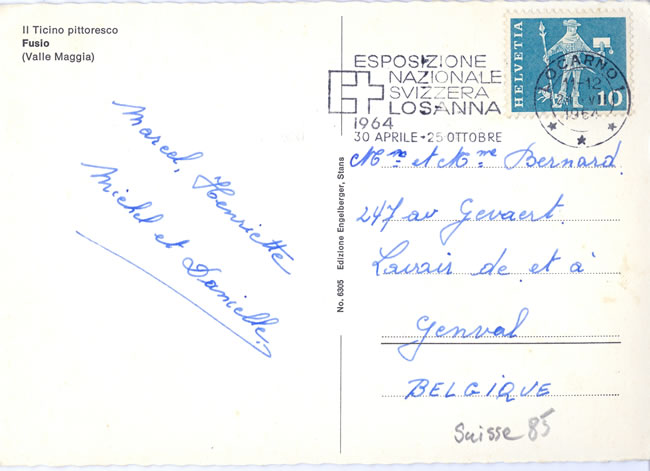 Il Ticino pittoresco
Fusio
(Valle Maggia)
Marcel, Henriette
Michel et Danielle.
No. 6305 Edizione Engelberger, Stans
ESPOSIZIONE
NAZIONALE
SVIZZERA
LOSANNA
1964
30 APRILE - 25 OTTOBRE
HELVETIA
10
LOCARNO 1
1964
et Mme Bernard.
247 av Gevaert.
de et à
Genval
BELGIQUE
Suisse 85